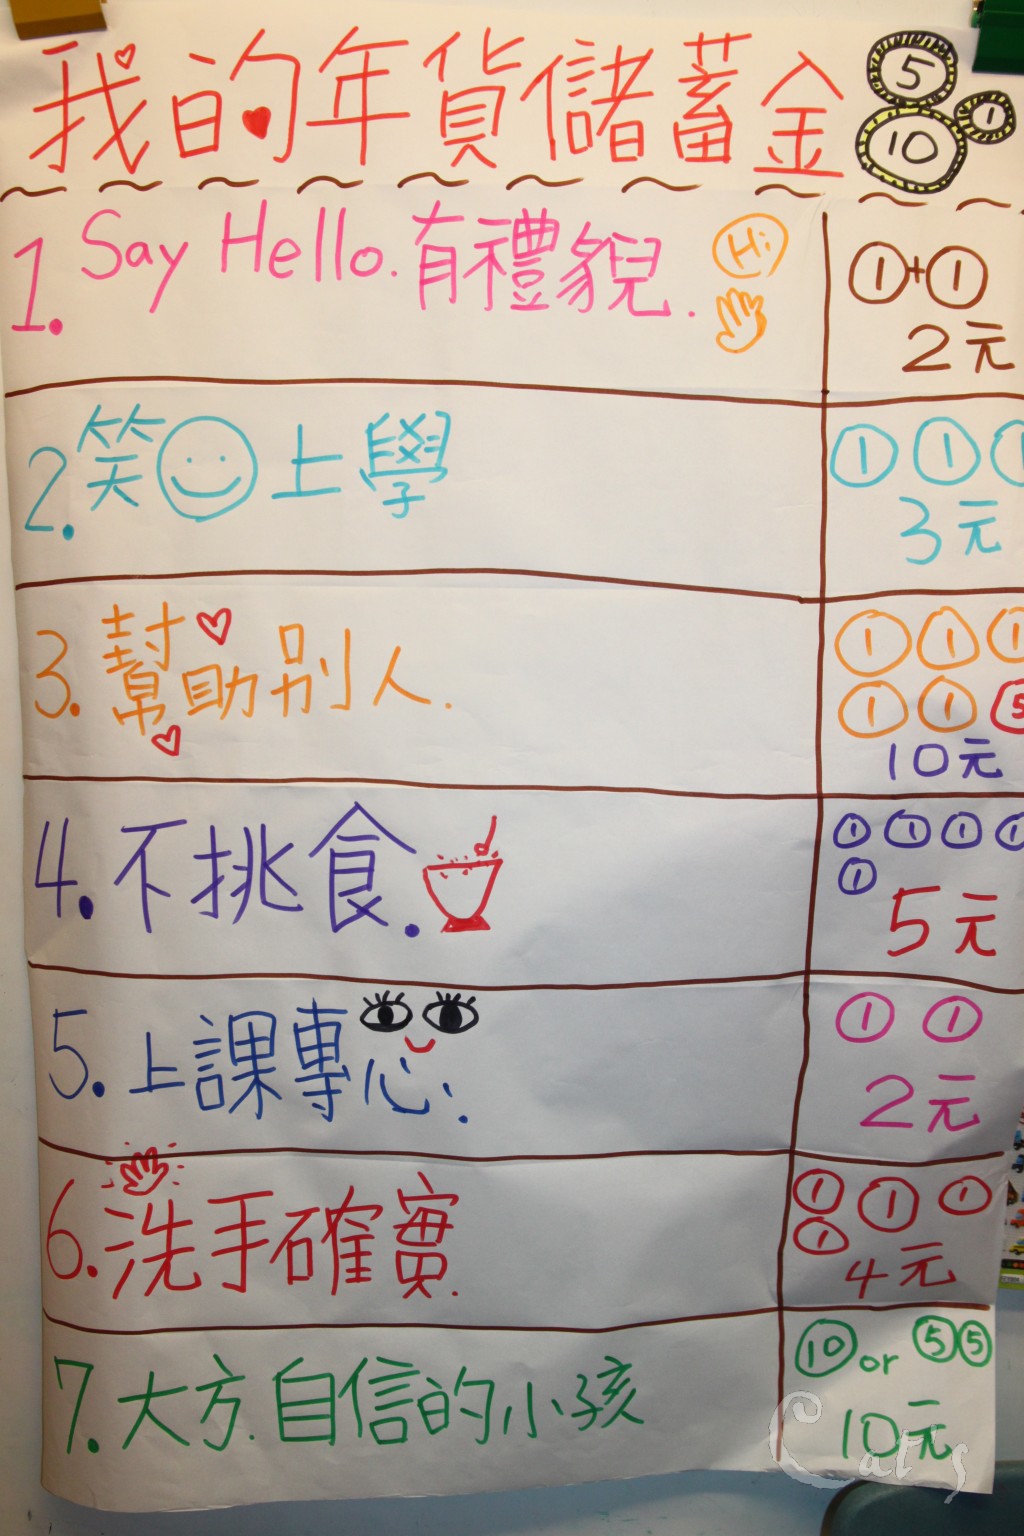 我的年貨儲蓄金 5 10 1
1. Say Hello. 有禮貌. Hi
①+① 2元
2. 笑 上學
① ① ①
3元
3. 幫助別人.
① ① ①
① ① ⑤
10元
4. 不挑食.
① ① ① ①
① 5元
5. 上課專心.
① ①
2元
6. 洗手確實.
① ① ①
① 4元
7. 大方.自信的小孩
⑩or ⑤⑤
10元
Cat's